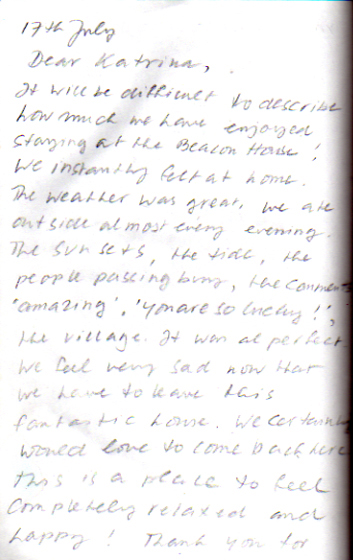 17th July
Dear Katrina,
It will be difficult to describe
how much we have enjoyed
staying at the Beacon House!
We instantly felt at home.
The weather was great, we ate
outside almost every evening.
The sunsets, the tide, the
people passing by, the comments
'amazing', 'you are so lucky!',
the village. It was all perfect.
We feel very sad now that
we have to leave this
fantastic house. We certainly
would love to come back here
This is a place to feel
completely relaxed and
happy! Thank you for